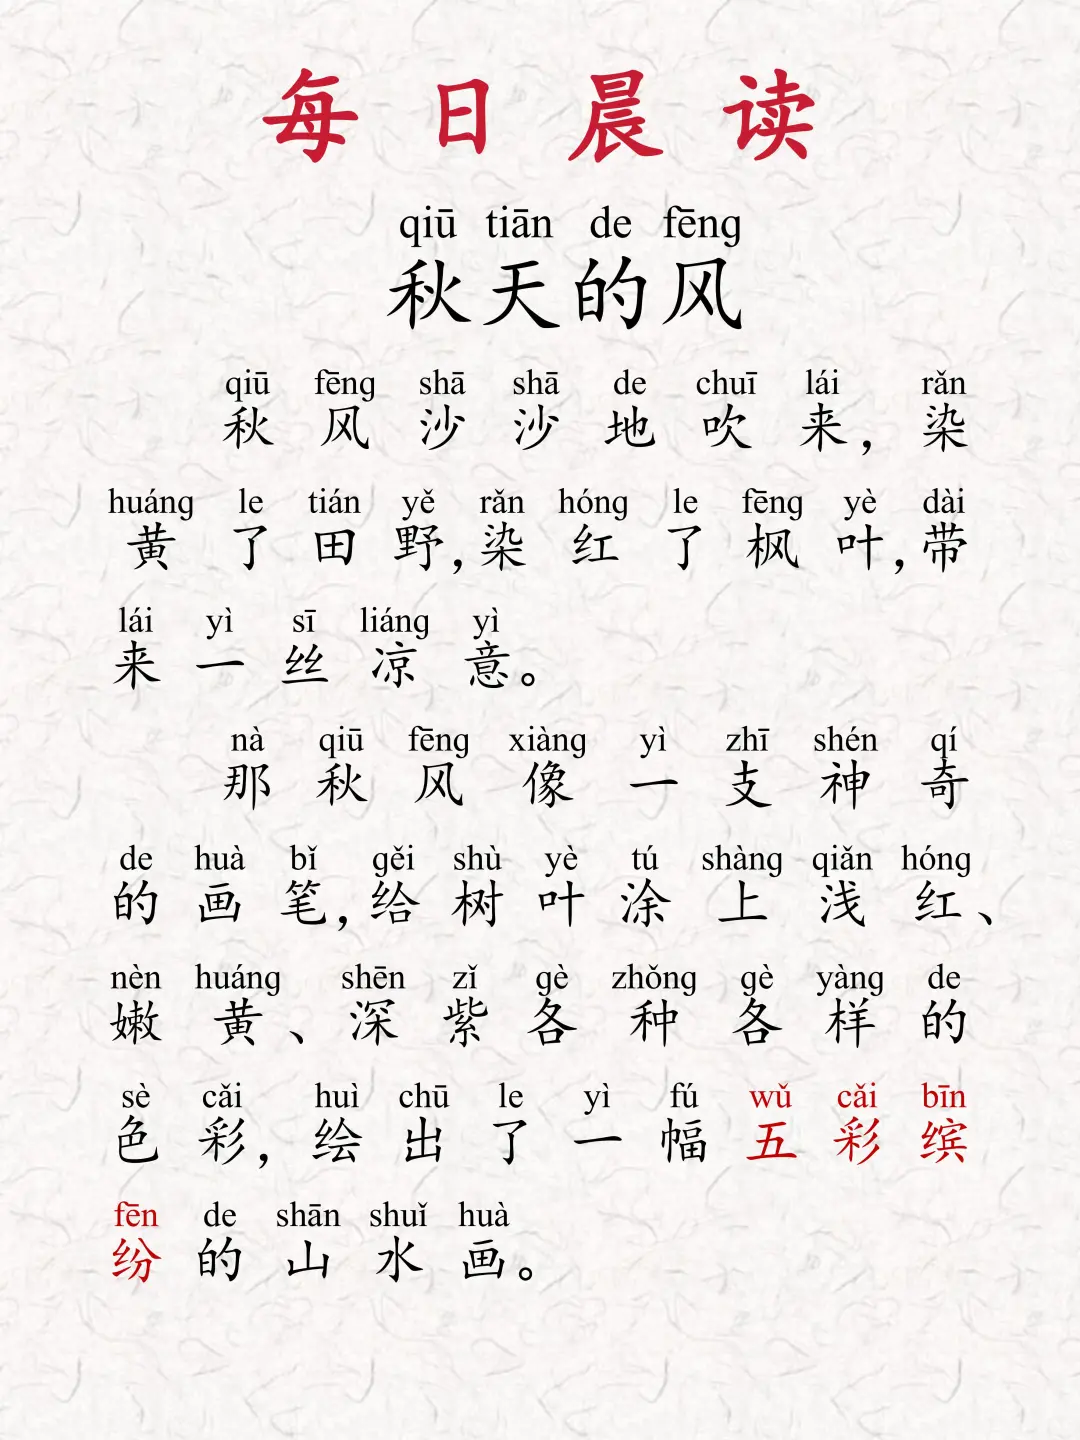 每日晨读
qiū tiān de fēng
秋天的风
qiū fēng shā shā de chuī lái rǎn
秋风沙沙地吹来，染
huáng le tián yě rǎn hóng le fēng yè dài
黄了田野，染红了枫叶，带
lái yì sī liáng yì
来一丝凉意。
nà qiū fēng xiàng yì zhī shén qí
那秋风像一支神奇
de huà bǐ gěi shù yè tú shàng qiǎn hóng
的画笔，给树叶涂上浅红、
nèn huáng shēn zǐ gè zhǒng gè yàng de
嫩黄、深紫各种各样的
sè cǎi huì chū le yì fú wǔ cǎi bīn
色彩，绘出了一幅五彩缤
fēn de shān shuǐ huà
纷的山水画。